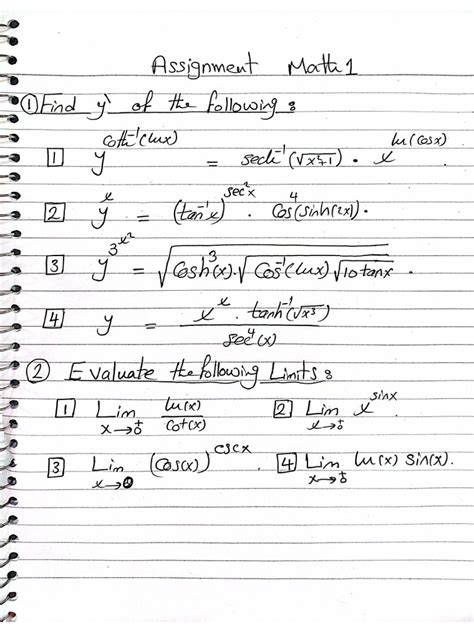 Assignment Math 1
① Find y' of the following :
1 y^(coth⁻¹(lnx)) = sech⁻¹(√(x²+1)) · x^(ln(cosx))
2 y^x = (tan⁻¹x)^(sec²x) · Cos⁴(sinh(2x)).
3 y^(3^(x²)) = √(Cosh³(x).√(Cos⁻¹(lnx)√(10tanx))) .
4 y = (x^x . tanh⁻¹(√x³)) / (sec⁴(x))
② Evaluate the following Limits :
1 Lim x→0⁺ ln(x)/Cot(x) 2 Lim x→0⁺ x^(sinx).
3 Lim x→0 (Cos(x))^(cscx) . 4 Lim x→0⁺ ln(x) Sin(x).